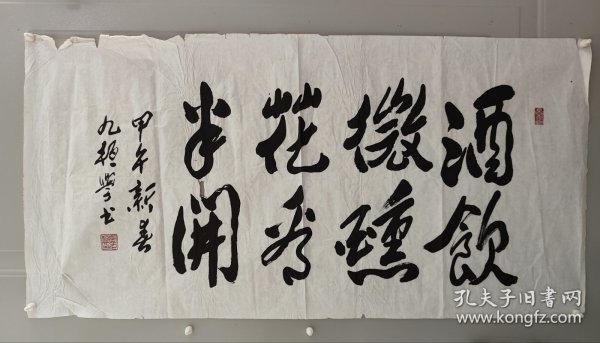 酒飲
微醺
花看
半開
甲午新春
九標學书
孔夫子旧书网
www.kongfz.com